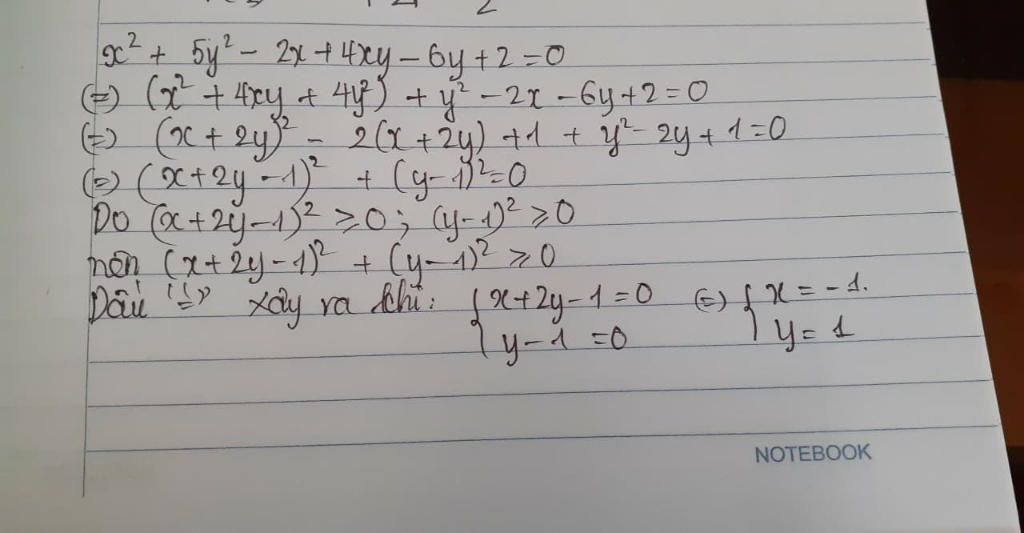 x² + 5y² - 2x + 4xy - 6y + 2 = 0
(=) (x² + 4xy + 4y²) + y² - 2x - 6y + 2 = 0
(=) (x + 2y)² - 2(x + 2y) + 1 + y² - 2y + 1 = 0
(=) (x + 2y - 1)² + (y - 1)² = 0
Do (x + 2y - 1)² ≥ 0; (y - 1)² ≥ 0
nên (x + 2y - 1)² + (y - 1)² ≥ 0
Dấu "=" xảy ra khi: { x + 2y - 1 = 0 (=) { x = -1.
y - 1 = 0 y = 1
NOTEBOOK